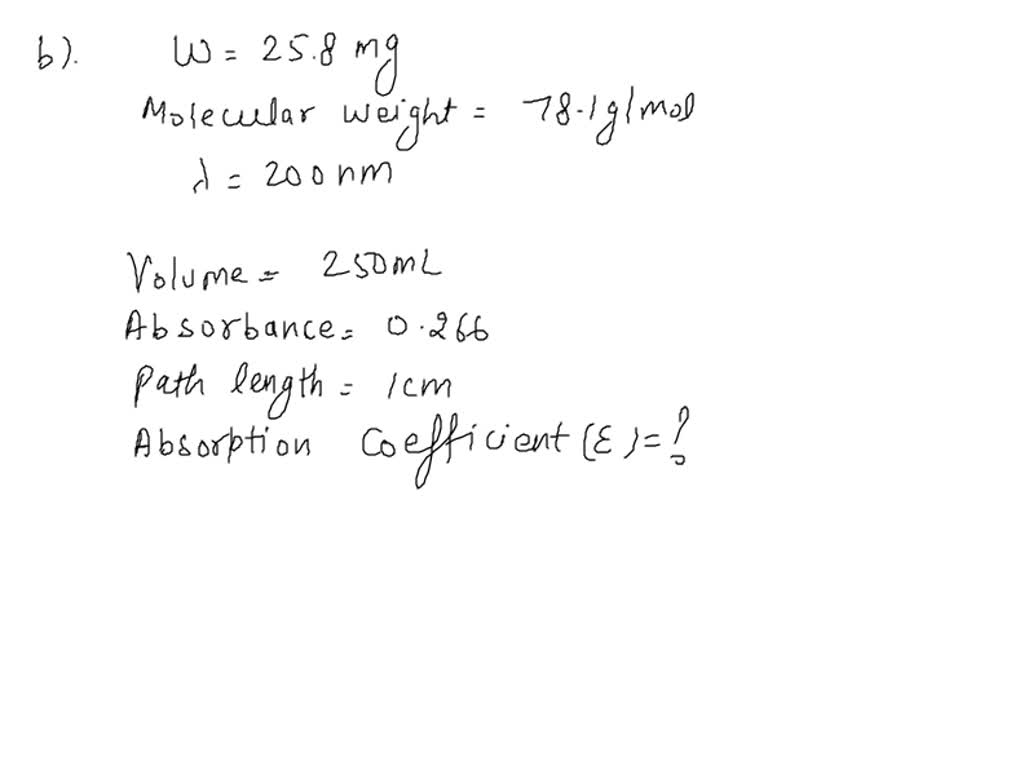 b). W = 25.8 mg
Molecular weight = 78.1g/mol
λ = 200nm
Volume = 250mL
Absorbance = 0.266
Path length = 1cm
Absorption Coefficient (ε) = ?